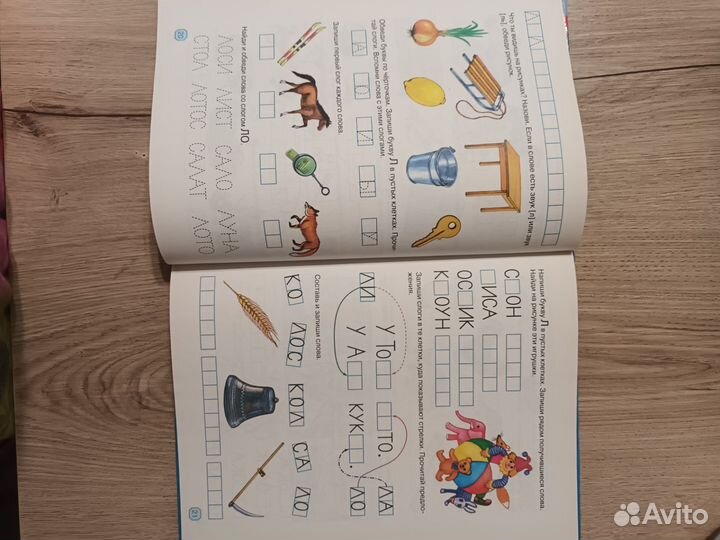 ЛЛ И
Что ты видишь на рисунках? Назови. Если в слове есть звук [л] или звук
[ль], обведи рисунок.
Обведи буквы по чёрточкам. Запиши букву Л в пустых клетках. Прочи-
тай слоги. Вспомни слова с этими слогами.
А О И Ы У
Запиши первый слог каждого слова.
Найди и обведи слова со слогом ЛО.
ЛОСИ ЛИСТ САЛО ЛУНА
СТОЛ ЛОТОС САЛАТ ЛОТО
20
Напиши букву Л в пустых клетках. Запиши рядом получившиеся слова.
Найди на рисунке эти игрушки.
С ОН
ИСА
ОС ИК
К ОУН
Запиши слоги в те клетки, куда показывают стрелки. Прочитай предло-
жения.
ЛИ У То ТО. ЛА
У А КУК . ЛО
Составь и запиши слова.
КО ЛОС КОЛ СА ЛО
21
Avito